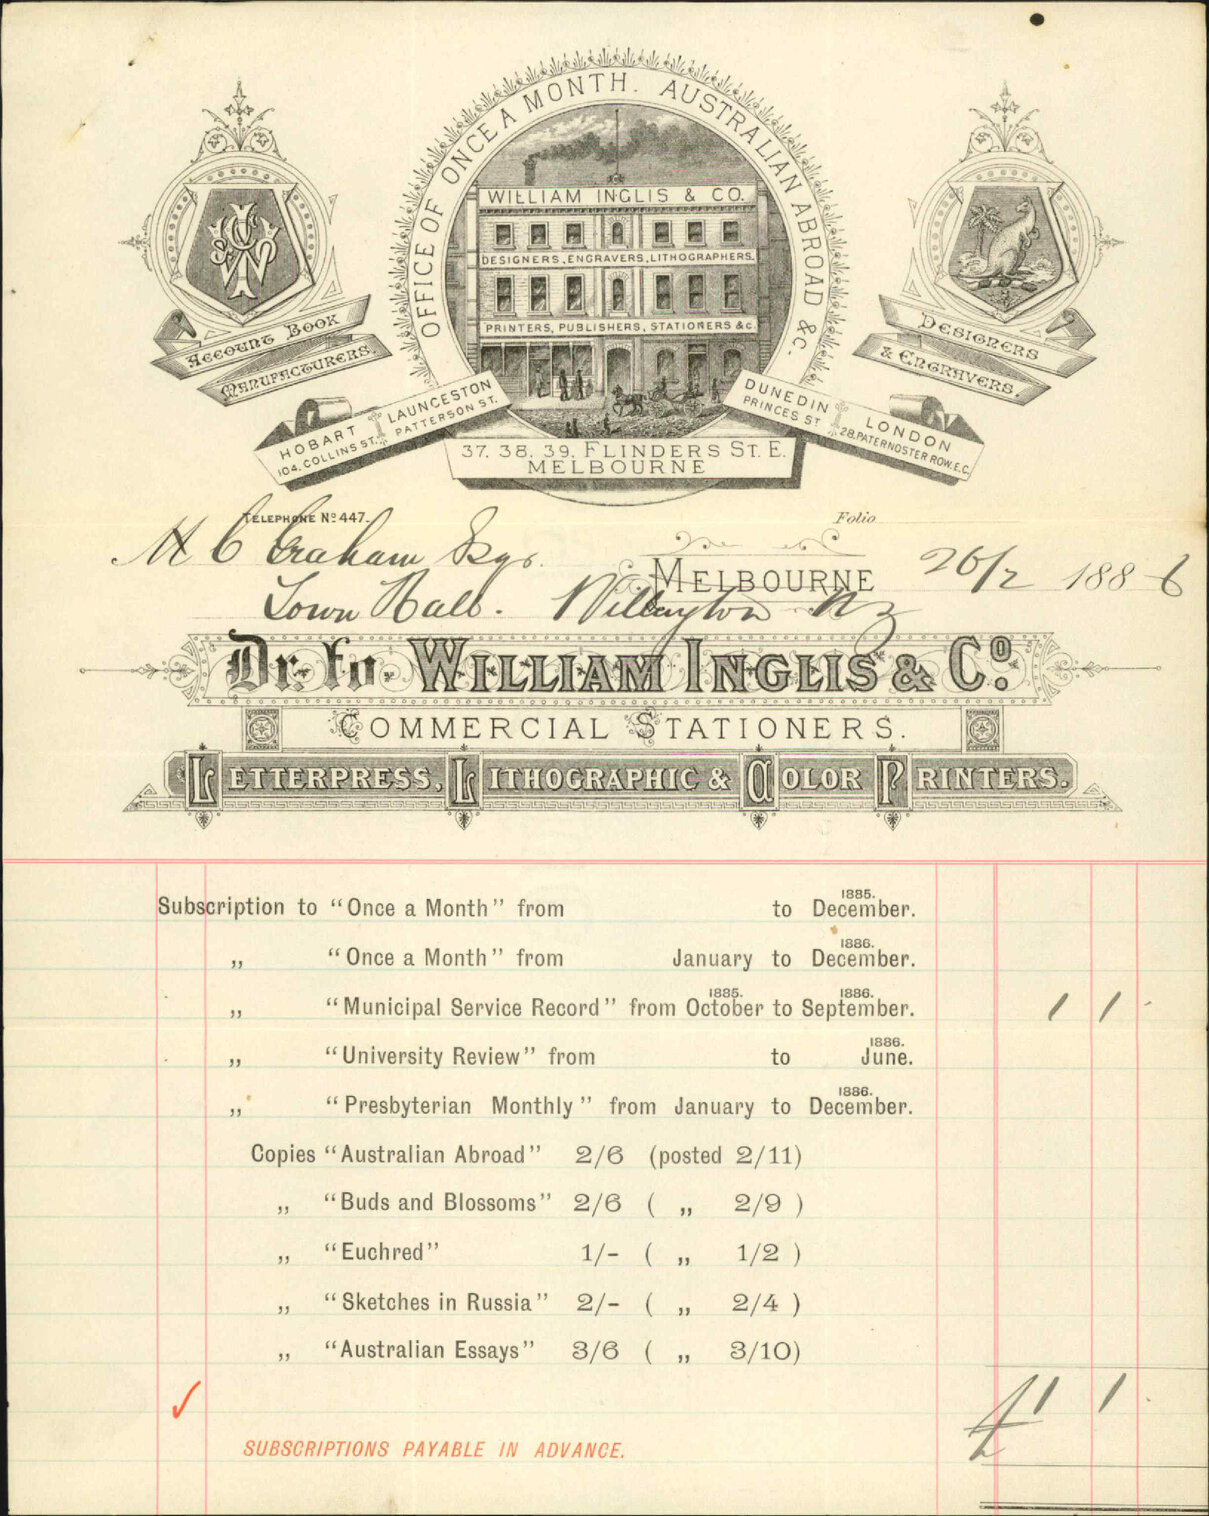 OFFICE OF ONCE A MONTH. AUSTRALIAN ABROAD &c.
WILLIAM INGLIS & CO.
DESIGNERS, ENGRAVERS, LITHOGRAPHERS.
PRINTERS, PUBLISHERS, STATIONERS &c.
ACCOUNT BOOK
MANUFACTURERS.
DESIGNERS
& ENGRAVERS.
HOBART
104. COLLINS ST.
LAUNCESTON
PATTERSON ST.
DUNEDIN
PRINCES ST
LONDON
28. PATERNOSTER ROW. E.C.
37. 38. 39. FLINDERS ST. E.
MELBOURNE
TELEPHONE No 447.
Folio
H C Graham Esqr.
MELBOURNE 26/2 1886
Town Hall. Wellington NZ
Dr. to WILLIAM INGLIS & Co.
COMMERCIAL STATIONERS.
LETTERPRESS, LITHOGRAPHIC & COLOR PRINTERS.
Subscription to "Once a Month" from to December. 1885.
„ "Once a Month" from January to December. 1886.
„ "Municipal Service Record" from October 1885. to September. 1886. 1 1 -
„ "University Review" from to June. 1886.
„ "Presbyterian Monthly" from January to December. 1886.
Copies "Australian Abroad" 2/6 (posted 2/11)
„ "Buds and Blossoms" 2/6 ( „ 2/9 )
„ "Euchred" 1/- ( „ 1/2 )
„ "Sketches in Russia" 2/- ( „ 2/4 )
„ "Australian Essays" 3/6 ( „ 3/10)
£1 1
SUBSCRIPTIONS PAYABLE IN ADVANCE.